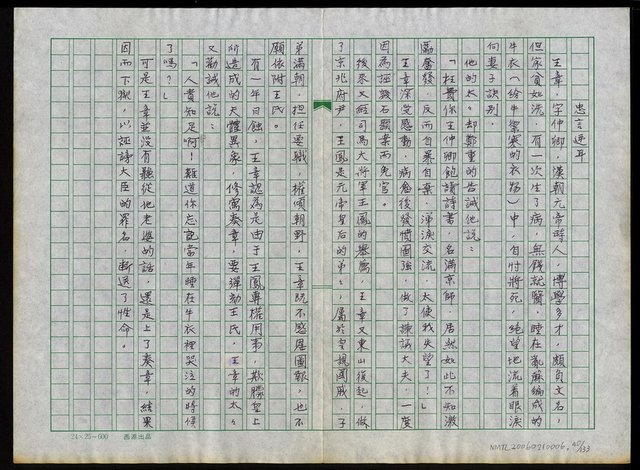 忠言逆耳
王章,字仲卿,漢朝元帝時人,博學多才,頗負文名,
但家貧如洗,有一次生了病,無錢就醫,睡在亂蔴編成的
牛衣(給牛禦寒的衣物)中,自忖將死,絕望地流着眼淚
向妻子訣別。
他的太太却鄭重的告誡他說:
「枉費你王仲卿飽讀詩書,名滿京師,居然如此不知激
勵奮發,反而自暴自棄,涕淚交流,太使我失望了!」
王章深受感動,病愈後發憤圖強,做了諫議大夫,一度
因為抵毀石顯案而免官。
後來又經司馬大將軍王鳳的舉薦,王章又東山復起,做
了京兆府尹,王鳳是元帝皇后的弟弟,屬於皇親國戚,子
弟滿朝,担任要職,權傾朝野,王章既不感恩圖報,也不
願依附王氏。
有一年日蝕,王章認為是由于王鳳專權用事,欺朦皇上
所造成的天譴異象,修寫奏章,要彈劾王氏,王章的太太
又勸誡他說:
「人貴知足啊!難道你忘記當年睡在牛衣裡哭泣的時候
了嗎?」
可是王章並沒有聽從他老婆的話,還是上了奏章,結果
因而下獄,以誣謗大臣的罪名,斷送了性命。
24×25=600 西湖出品
NMTL20060210006. 40/133